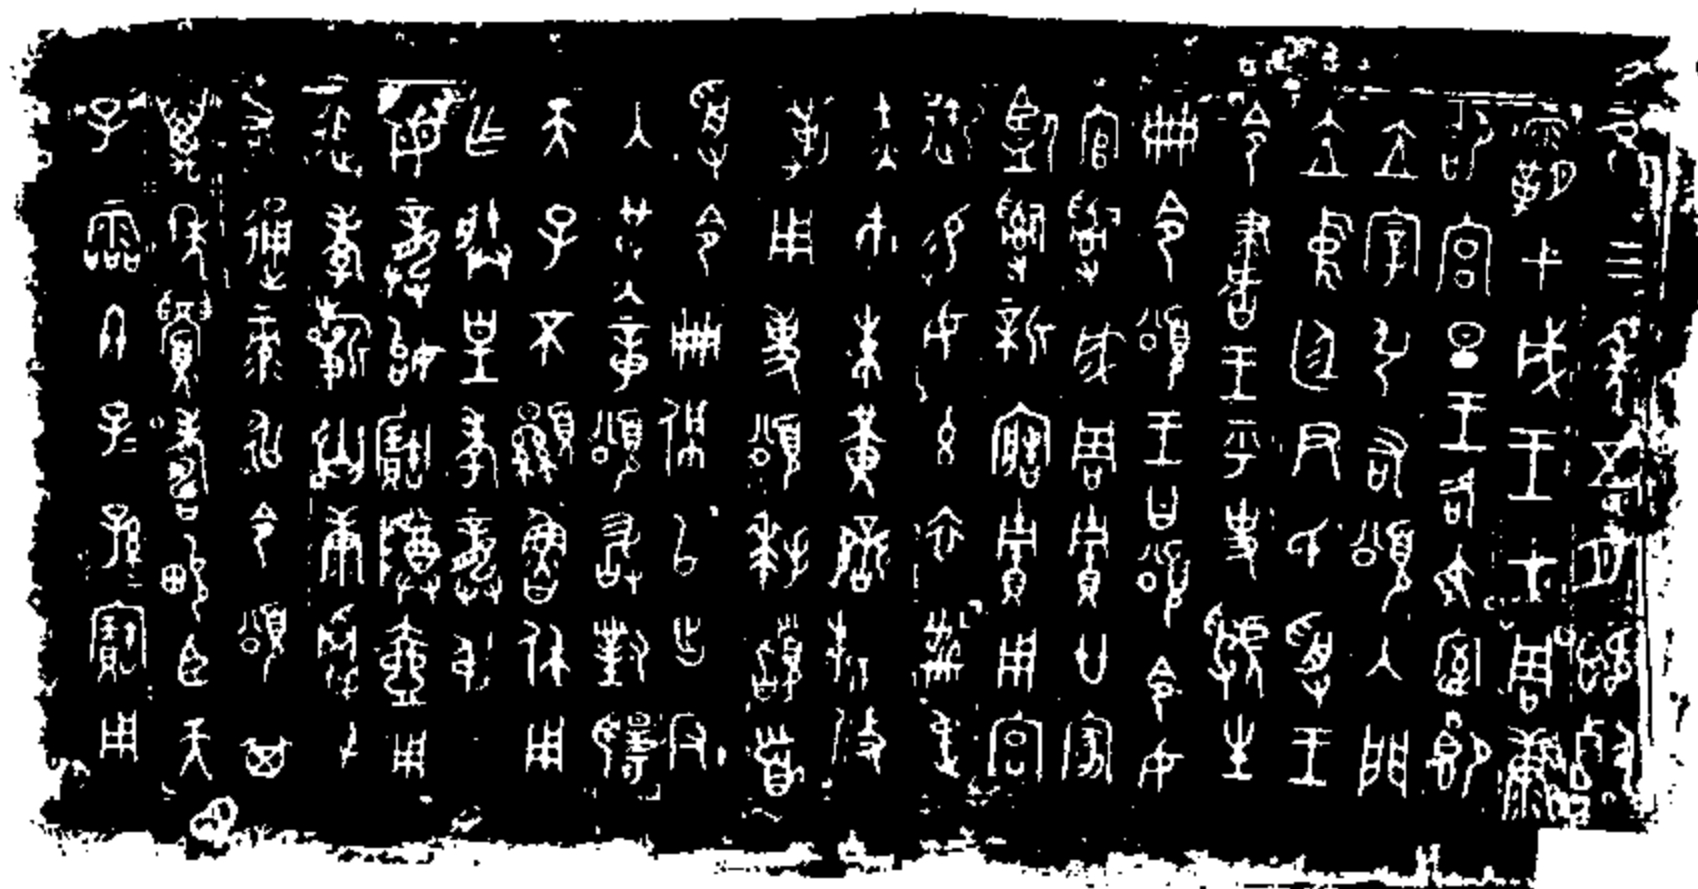 隹三年五月既死
霸甲戌王才周康
卲宮旦王各大室即
立宰弘右頌入門
立中廷尹氏受王
令書王乎史虢生
冊令頌王曰頌令女
官𤔲成周貯廿家
監𤔲新造貯用宮
御易女玄衣黹屯
赤巿朱黃䜌旂攸
勒用事頌拜𩒨首
受令冊佩㠯出反
入堇章頌敢對揚
天子不顯魯休用
乍朕皇考龏弔
皇母龏始寶尊鼎用
追孝祈匄康𩁹屯
右通彔永令頌其
萬年眉壽畯臣天
子霝冬子子孫孫寶用